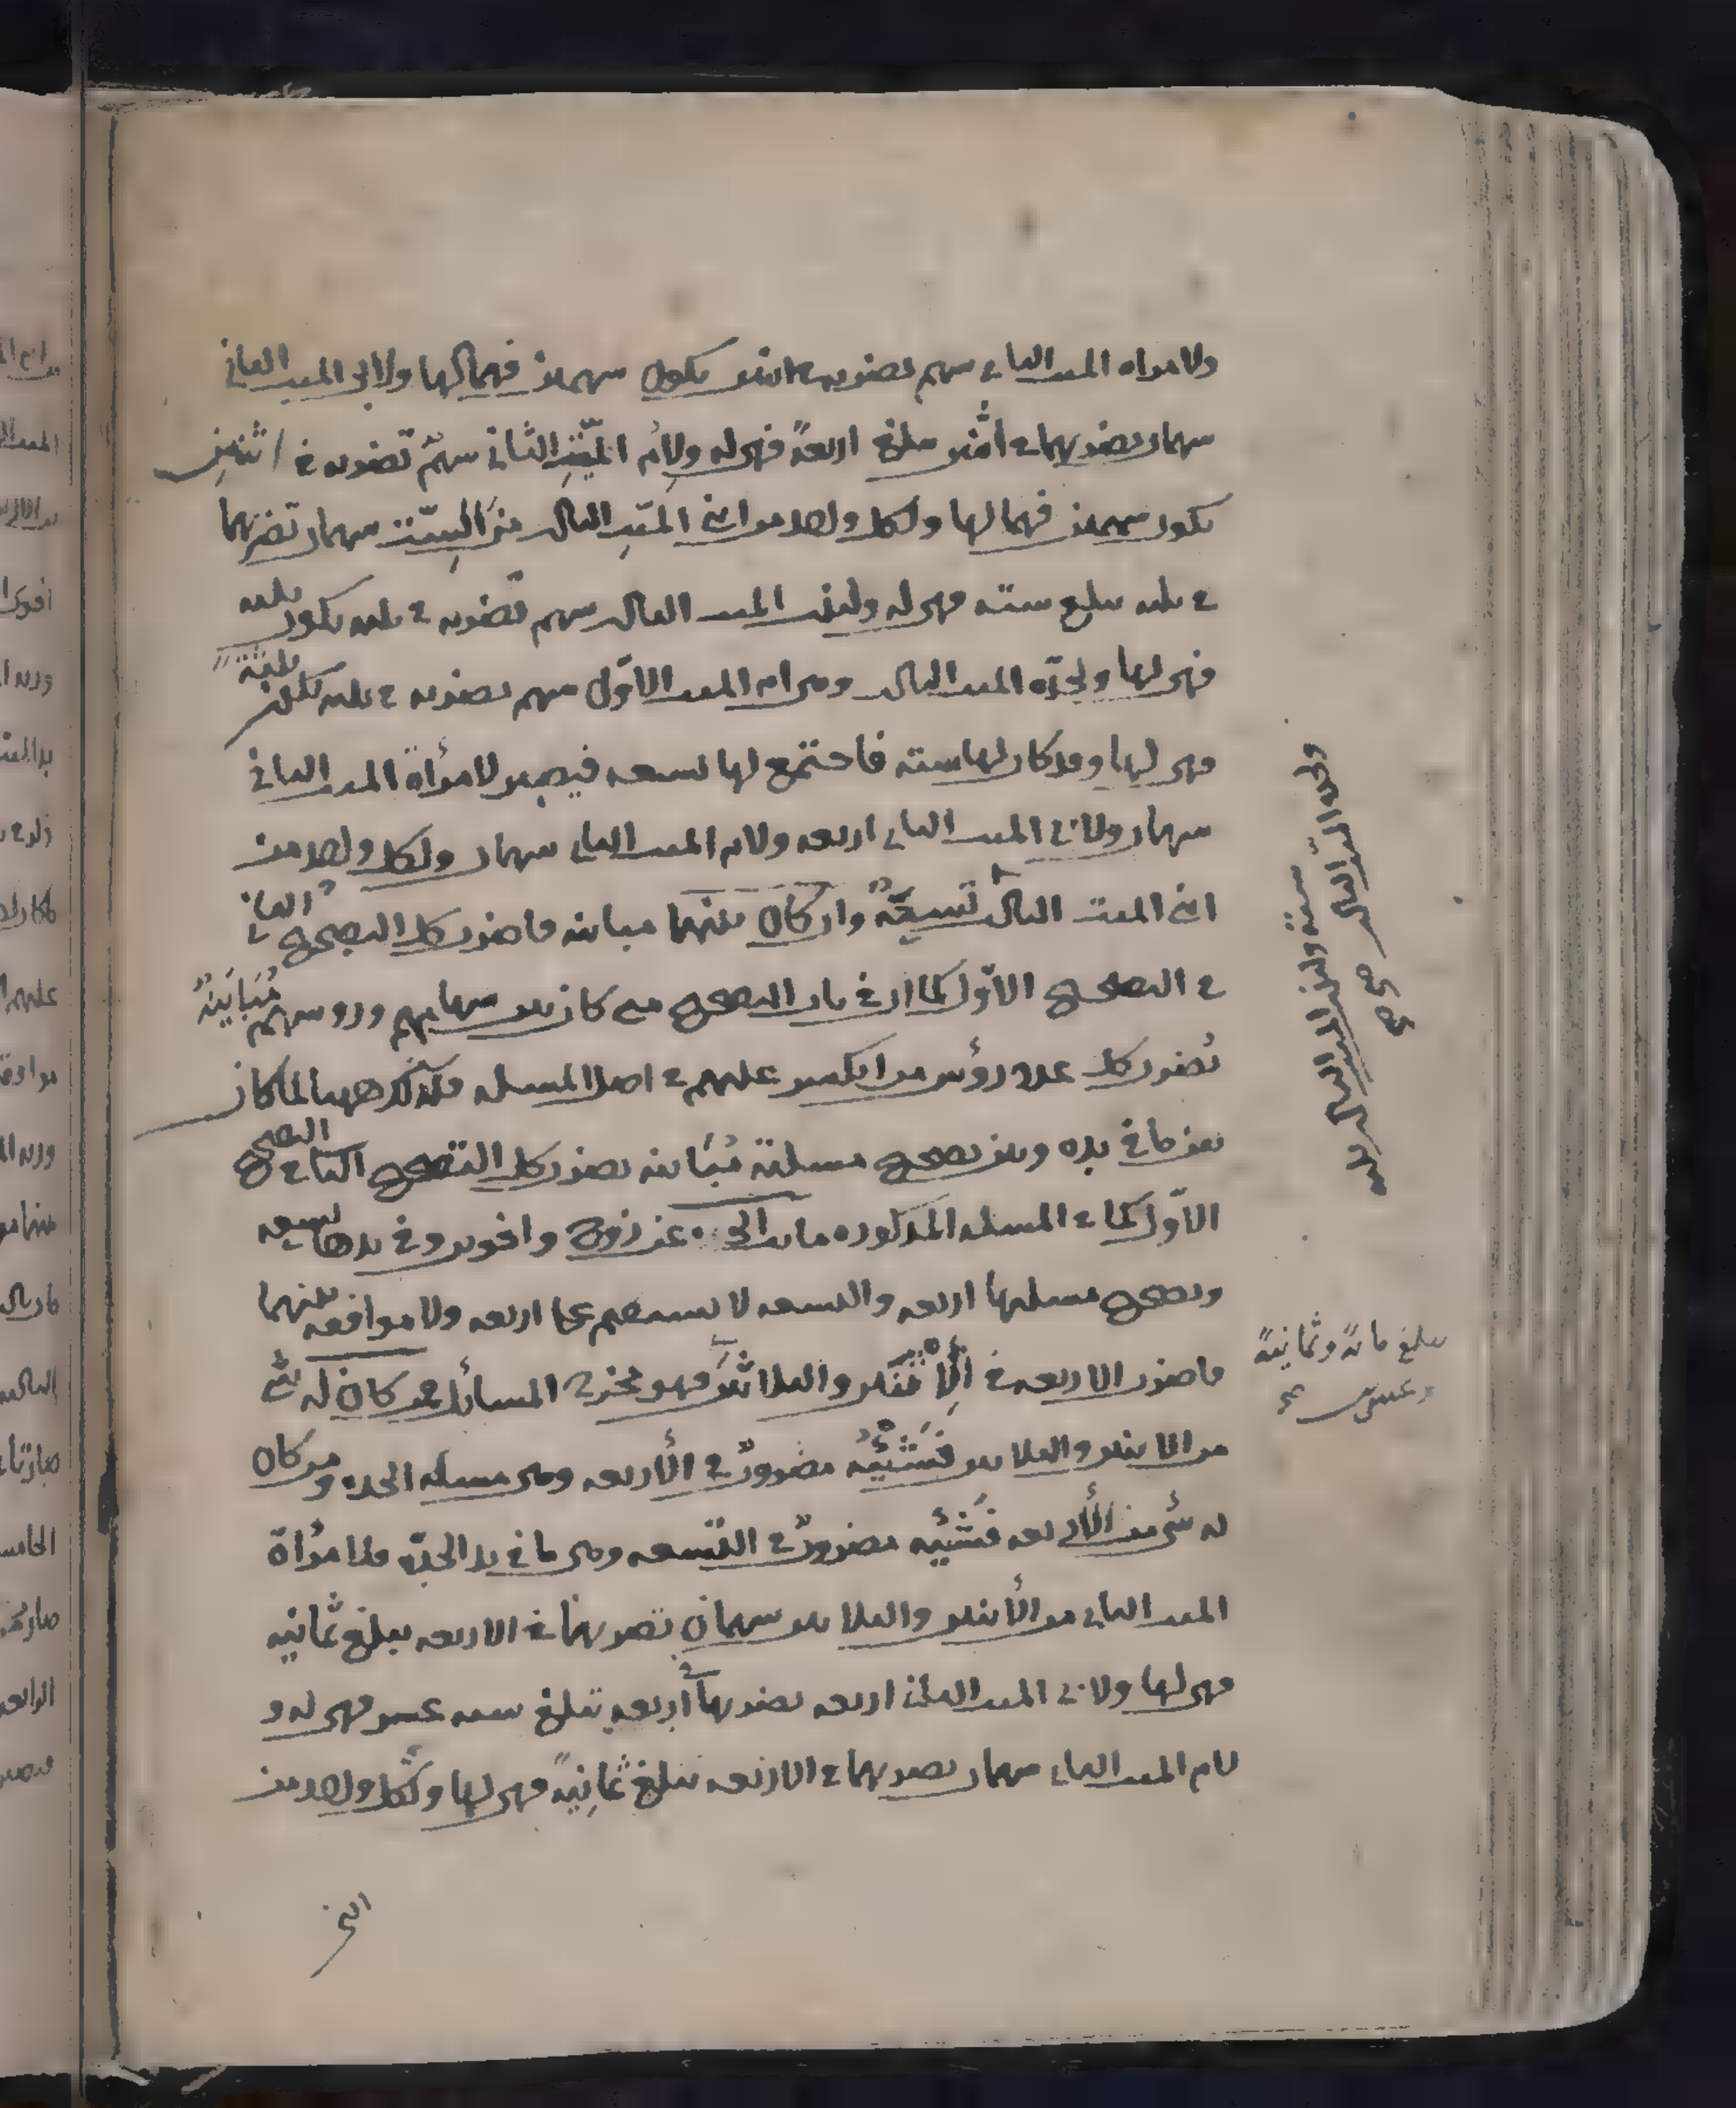 ولامراه الميت الثاني سهم نضربه في اثنين يكون سهمين فهما لها ولابي الميت الثاني
سهمان نضربهما في اثنين يبلغ اربعة فهي له ولام الميت الثاني سهم تضربه في اثنين
يكون سهمين فهما لها ولكل واحد من ابني الميت الثالث من الستة سهمان تضربهما
في ثلثه يبلغ سته فهي له ولبنت الميت الثالث سهم تضربه في ثلثه يكون ثلثه
فهي لها ولجدّه الميت الثالث وهي ام الميت الاوّل سهم نضربه في ثلثه تكون ثلثة
فهي لها وقد كان لها سته فاجتمع لها تسعه فيصير لامرأة الميت الثاني
سهمان ولابي الميت الثاني اربعه ولام الميت الثاني سهمان ولكل واحد من
ابني الميت الثالث تسعة وان كان بينهما مباينه فاضرب كل التصحيح الثاني
في التصحيح الاوّل كما ان في باب التصحيح متى كان بين سهامهم وروسهم مُبَايَنَةٌ
نضرب كل عدد رؤس من انكسر عليهم في اصل المسله فكذلك ههنا لما كان
بين ما في يده وبين تصحيح مسلته مُبَاينه نضرب كل التصحيح الثاني في التصحيح
الاوّل كما في المسله المذكوره ماتت الجده عن زوج واخوين وفي يدها تسعه
وتصحيح مسلتها اربعه والتسعه لا تستقيم على اربعه ولا موافقه بينهما
فاضرب الاربعه في الاثنين والثلاثين فهو مخرج المسائل فمن كان له شئ
من الاثنين والثلاثين فشيئه مضروب في الأربعه وهي مسله الجده ومن كان
له شئ من الأربعه فشيئه مضروب في التسعه وهي ما في يد الجدّه فلامرأة
الميت الثاني من الأثنين والثلاثين سهمان نضربهما في الاربعه يبلغ ثمانيه
فهي لها ولابي الميت الثاني اربعه نضربها في اربعه تبلغ سته عشر فهي له و
لام الميت الثاني سهمان نضربهما في الاربعه تبلغ ثمانية فهي لها ولكل واحد من
ابني
ولجدة الميت الثالث
ستة ولبنت الميت الثالث ثلثه
صح صح
يبلغ مائة وثمانية
وعشرين